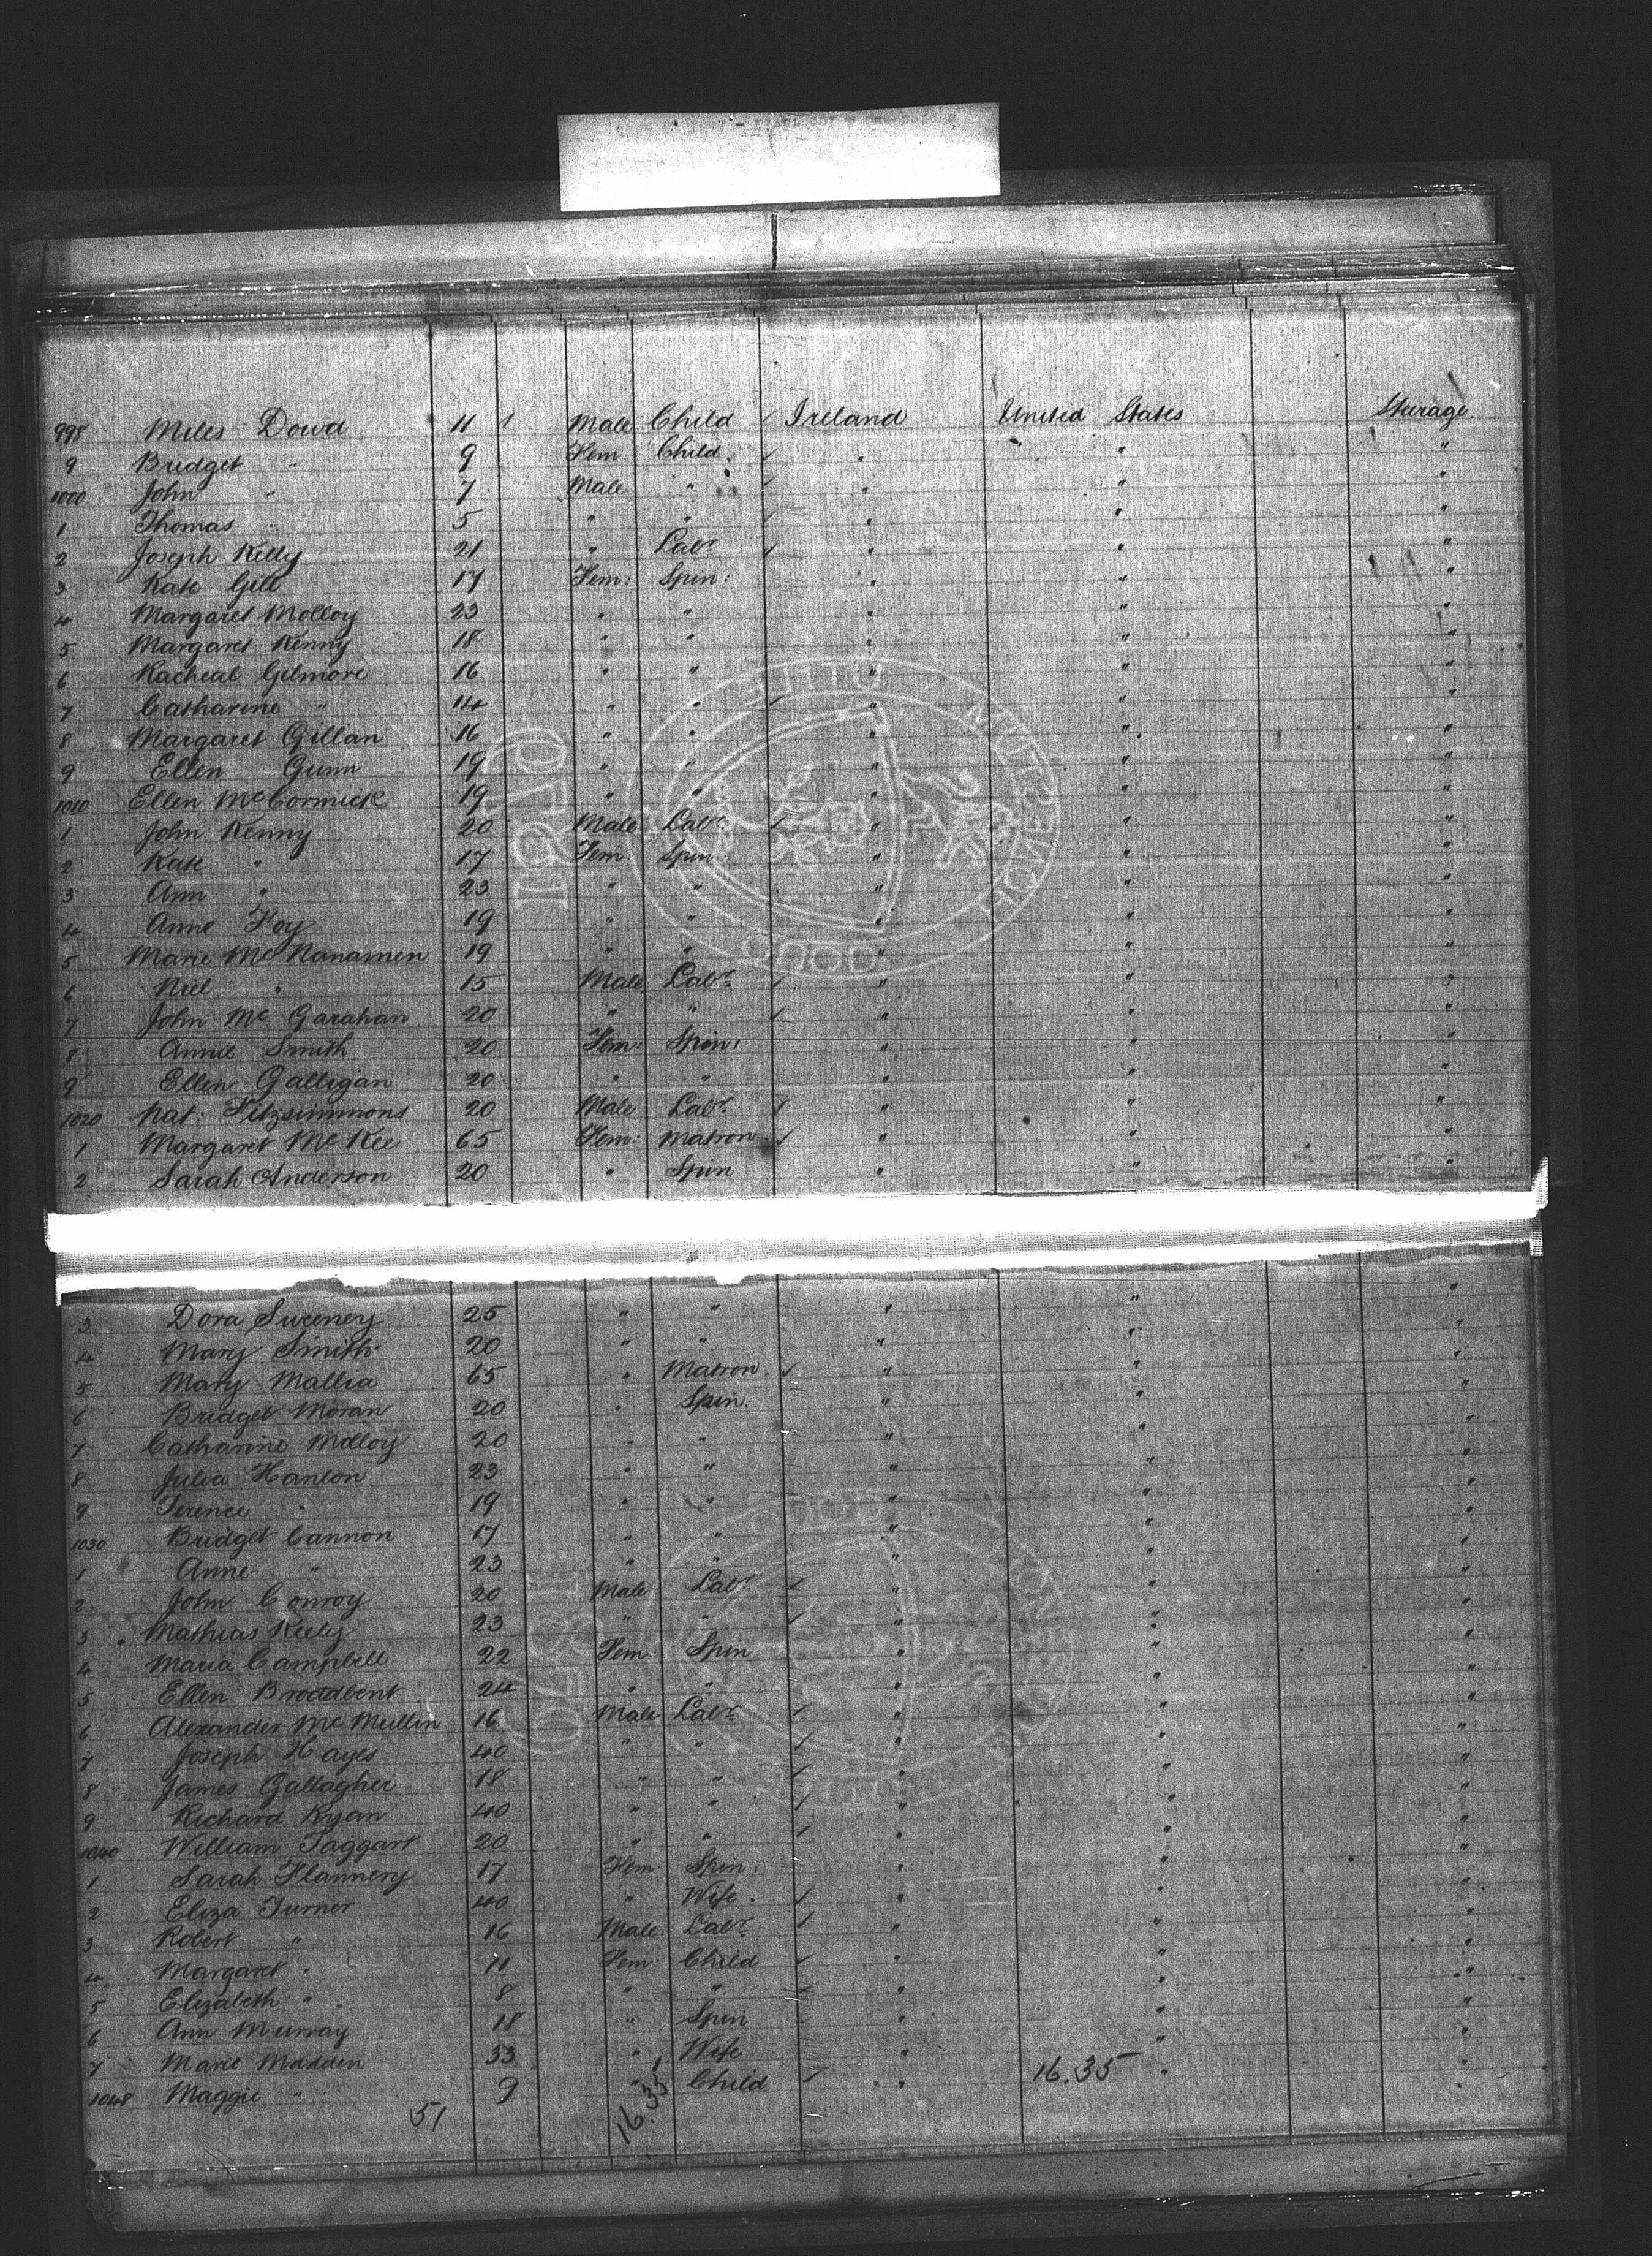 998 Miles Dowd 11 Male Child Ireland United States Steerage.
9 Bridget " 9 Fem Child " " "
1000 John " 7 Male " " " "
1 Thomas " 5 " " " " "
2 Joseph Kelly 21 " Labr " " "
3 Kate Gill 17 Fem: Spin: " " "
4 Margaret Molloy 23 " " " " "
5 Margaret Kenny 18 " " " " "
6 Racheal Gilmore 16 " " " " "
7 Catharine " 14 " " " " "
8 Margaret Gillan 16 " " " " "
9 Ellen Gunn 19 " " " " "
1010 Ellen McCormick 19 " " " " "
1 John Kenny 20 Male Labr. " " "
2 Kate " 17 Fem: Spin " " "
3 Ann " 23 " " " " "
4 Anne Foy 19 " " " " "
5 Marie McNanamen 19 " " " " "
6 Niel " 15 Male Labr. " " "
7 John Mc Garahan 20 " " " " "
8 Annie Smith 20 Fem: Spin: " " "
9 Ellen Galligan 20 " " " " "
1020 Pat: Fitzsimmons 20 Male Labr. " " "
1 Margaret McKee 65 Fem: Matron " " "
2 Sarah Anderson 20 " Spin " " "
3 Dora Sweeney 25 " " " " "
4 Mary Smith 20 " " " " "
5 Mary Mallia 65 " Matron " " "
6 Bridget Moran 20 " Spin. " " "
7 Catharine Molloy 20 " " " " "
8 Julia Hanlon 23 " " " " "
9 Terence " 19 " " " " "
1030 Bridget Cannon 17 " " " " "
1 Anne " 23 " " " " "
2 John Conroy 20 Male Labr. " " "
3 Mathias Keely 23 " " " " "
4 Maria Campbell 22 Fem: Spin " " "
5 Ellen Broadbent 24 " " " " "
6 Alexander McMullin 16 Male Labr. " " "
7 Joseph Hayes 40 " " " " "
8 James Gallagher 18 " " " " "
9 Richard Ryan 40 " " " " "
1040 William Taggart 20 " " " " "
1 Sarah Flannery 17 Fem: Spin: " " "
2 Eliza Turner 40 " Wife. " " "
3 Robert " 16 Male Labr. " " "
4 Margaret " 11 Fem: Child " " "
5 Elizabeth " 8 " " " " "
6 Ann Murray 18 " Spin " " "
7 Marie Madden 33 " Wife " " "
1048 Maggie " 9 " Child " 16.35 " "
51 16.35